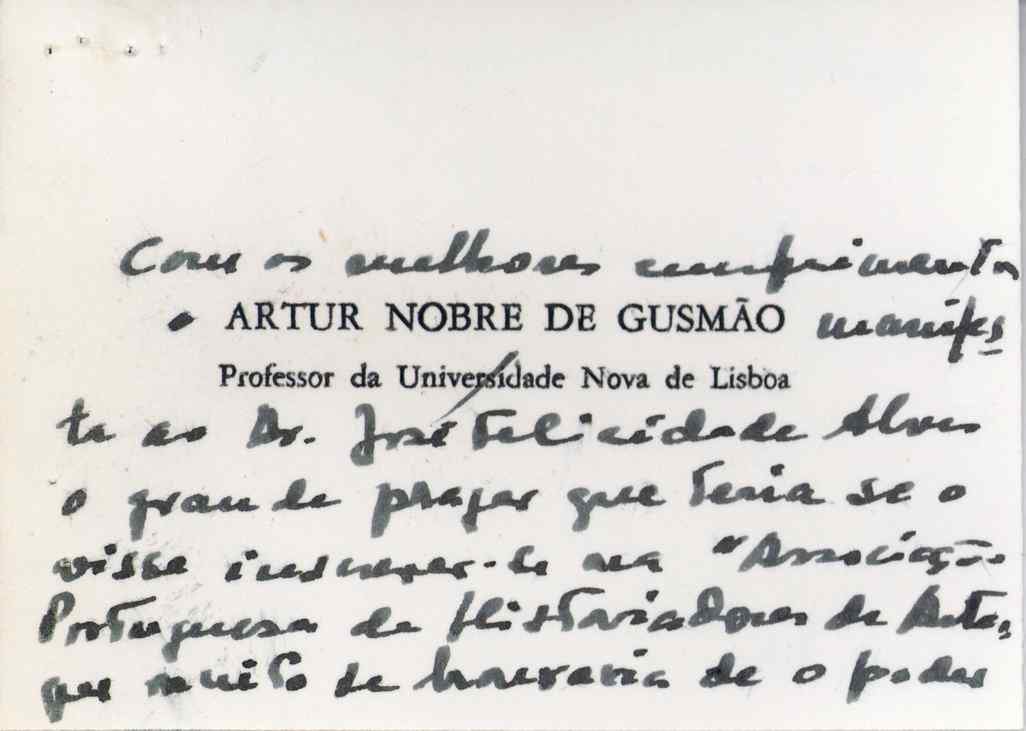 Com os melhores cumprimentos
• ARTUR NOBRE DE GUSMÃO manifes
Professor da Universidade Nova de Lisboa
ta ao Dr. José Felicidade Alves
o grande prazer que teria se o
visse inscrever-se na "Associação
Portuguesa de Historiadores de Arte,
que muito se honraria de o poder